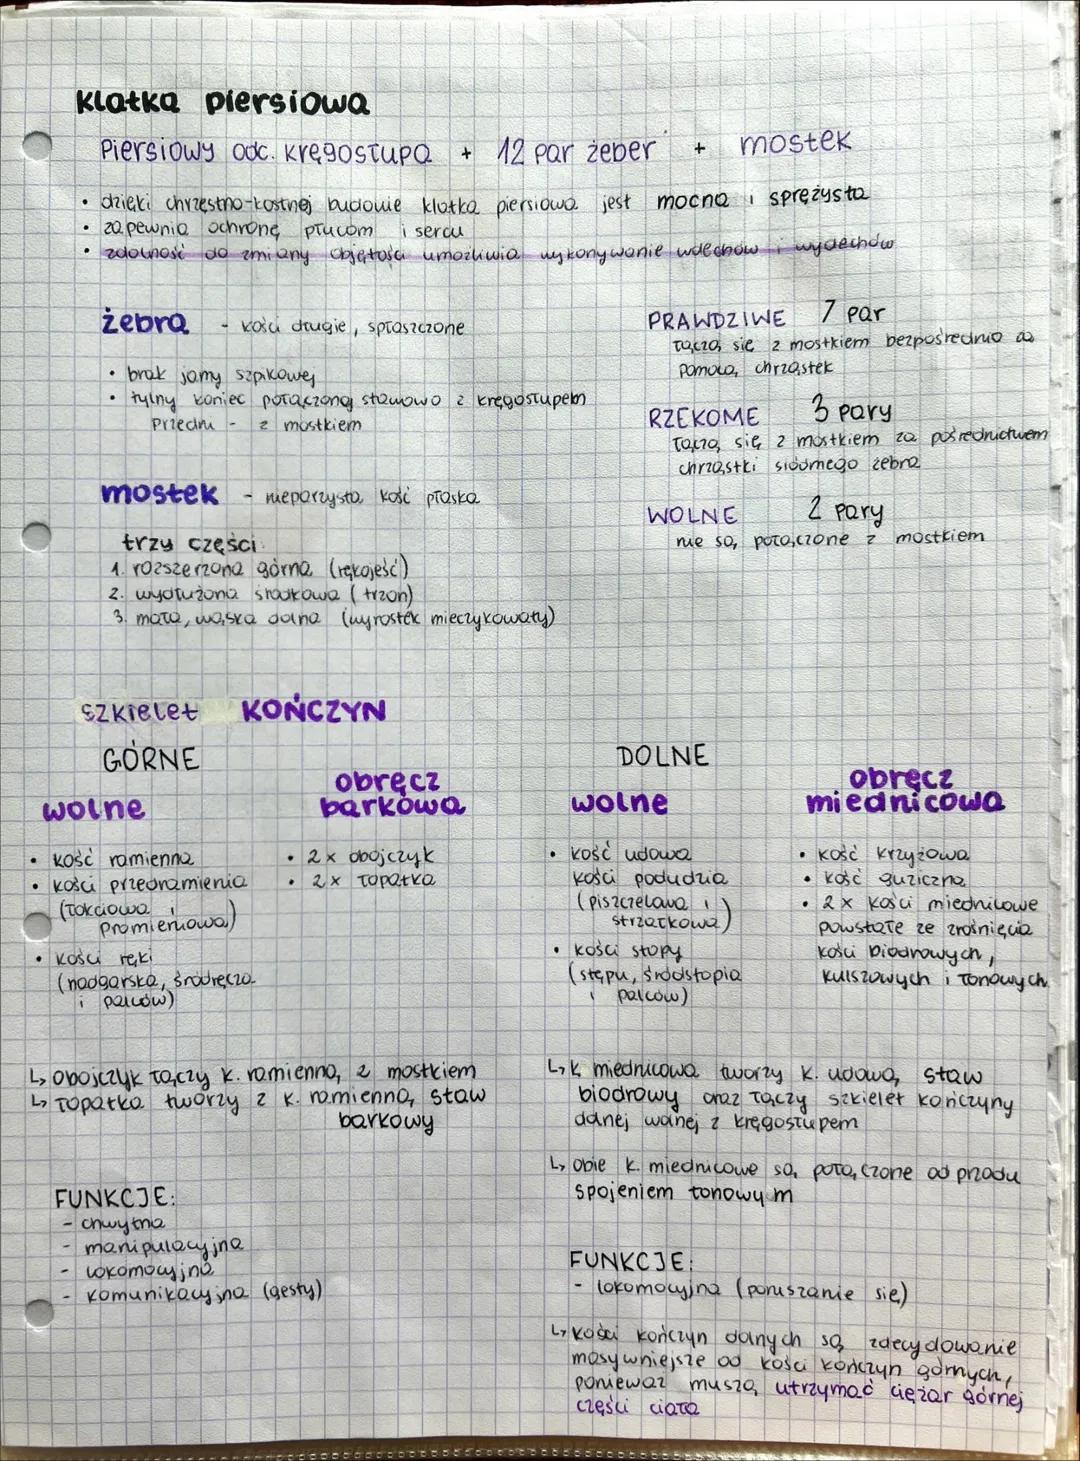 klatka piersiowa
Piersiowy odc. kręgosłupa + 12 par żeber + mostek
• dzięki chrzęstno-kostnej budowie klatka piersiowa jest mocna i sprężysta
• zapewnia ochronę płucom i sercu
• zdolność do zmiany objętości umożliwia wykonywanie wdechów i wydechów
żebra - kości długie, spłaszczone
• brak jamy szpikowej
• tylny koniec połączony stawowo z kręgosłupem
przedni - z mostkiem
PRAWDZIWE 7 par
łączą się z mostkiem bezpośrednio za
pomocą chrząstek
RZEKOME 3 pary
łączą się z mostkiem za pośrednictwem
chrząstki siódmego żebra
WOLNE 2 pary
nie są połączone z mostkiem
mostek - nieparzysta kość płaska
trzy części:
1. rozszerzona górna (rękojeść)
2. wydłużona środkowa (trzon)
3. mała, wąska dolna (wyrostek mieczykowaty)
szkielet KOŃCZYN
GÓRNE
wolne
• kość ramienna
• kości przedramienia
(łokciowa i
promieniowa)
• kości ręki
(nadgarska, śródręcza
i palców)
obręcz
barkowa
• 2x obojczyk
• 2x łopatka
↳ obojczyk łączy k. ramienną z mostkiem
↳ łopatka tworzy z k. ramienną staw
barkowy
FUNKCJE:
- chwytna
- manipulacyjna
- lokomocyjna
- komunikacyjna (gesty)
DOLNE
wolne
• kość udowa
kości podudzia
(piszczelowa i
strzałkowa)
• kości stopy
(stępu, śródstopia
i palców)
obręcz
miednicowa
• kość krzyżowa
• kość guziczna
• 2x kości miednicowe
powstałe ze zrośnięcia
kości biodrowych,
kulszowych i łonowych
↳ k. miednicowa tworzy k. udową staw
biodrowy oraz łączy szkielet kończyny
dolnej wolnej z kręgosłupem
↳ obie k. miednicowe są połączone od przodu
spojeniem łonowym
FUNKCJE:
- lokomocyjna (poruszanie się)
↳ kości kończyn dolnych są zdecydowanie
masywniejsze od kości kończyn górnych,
ponieważ muszą utrzymać ciężar górnej
części ciała